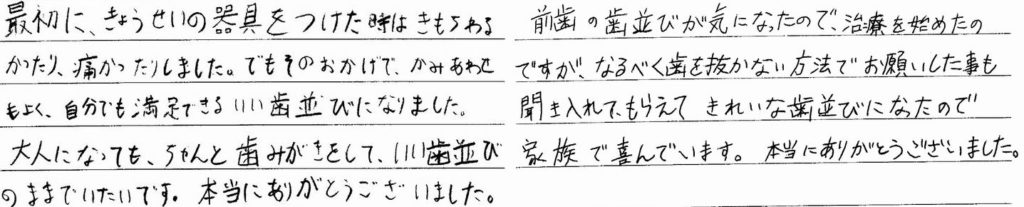 最初に、きょうせいの器具をつけた時はきもちわる
かたり、痛かったりしました。でもそのおかげで、かみあわせ
もよく、自分でも満足できるいい歯並びになりました。
大人になっても、ちゃんと歯みがきをして、いい歯並び
のままでいたいです。本当にありがとうございました。
前歯の歯並びが気になったので、治療を始めたの
ですが、なるべく歯を抜かない方法でお願いした事も
聞き入れてもらえてきれいな歯並びになったので
家族で喜んでいます。本当にありがとうございました。